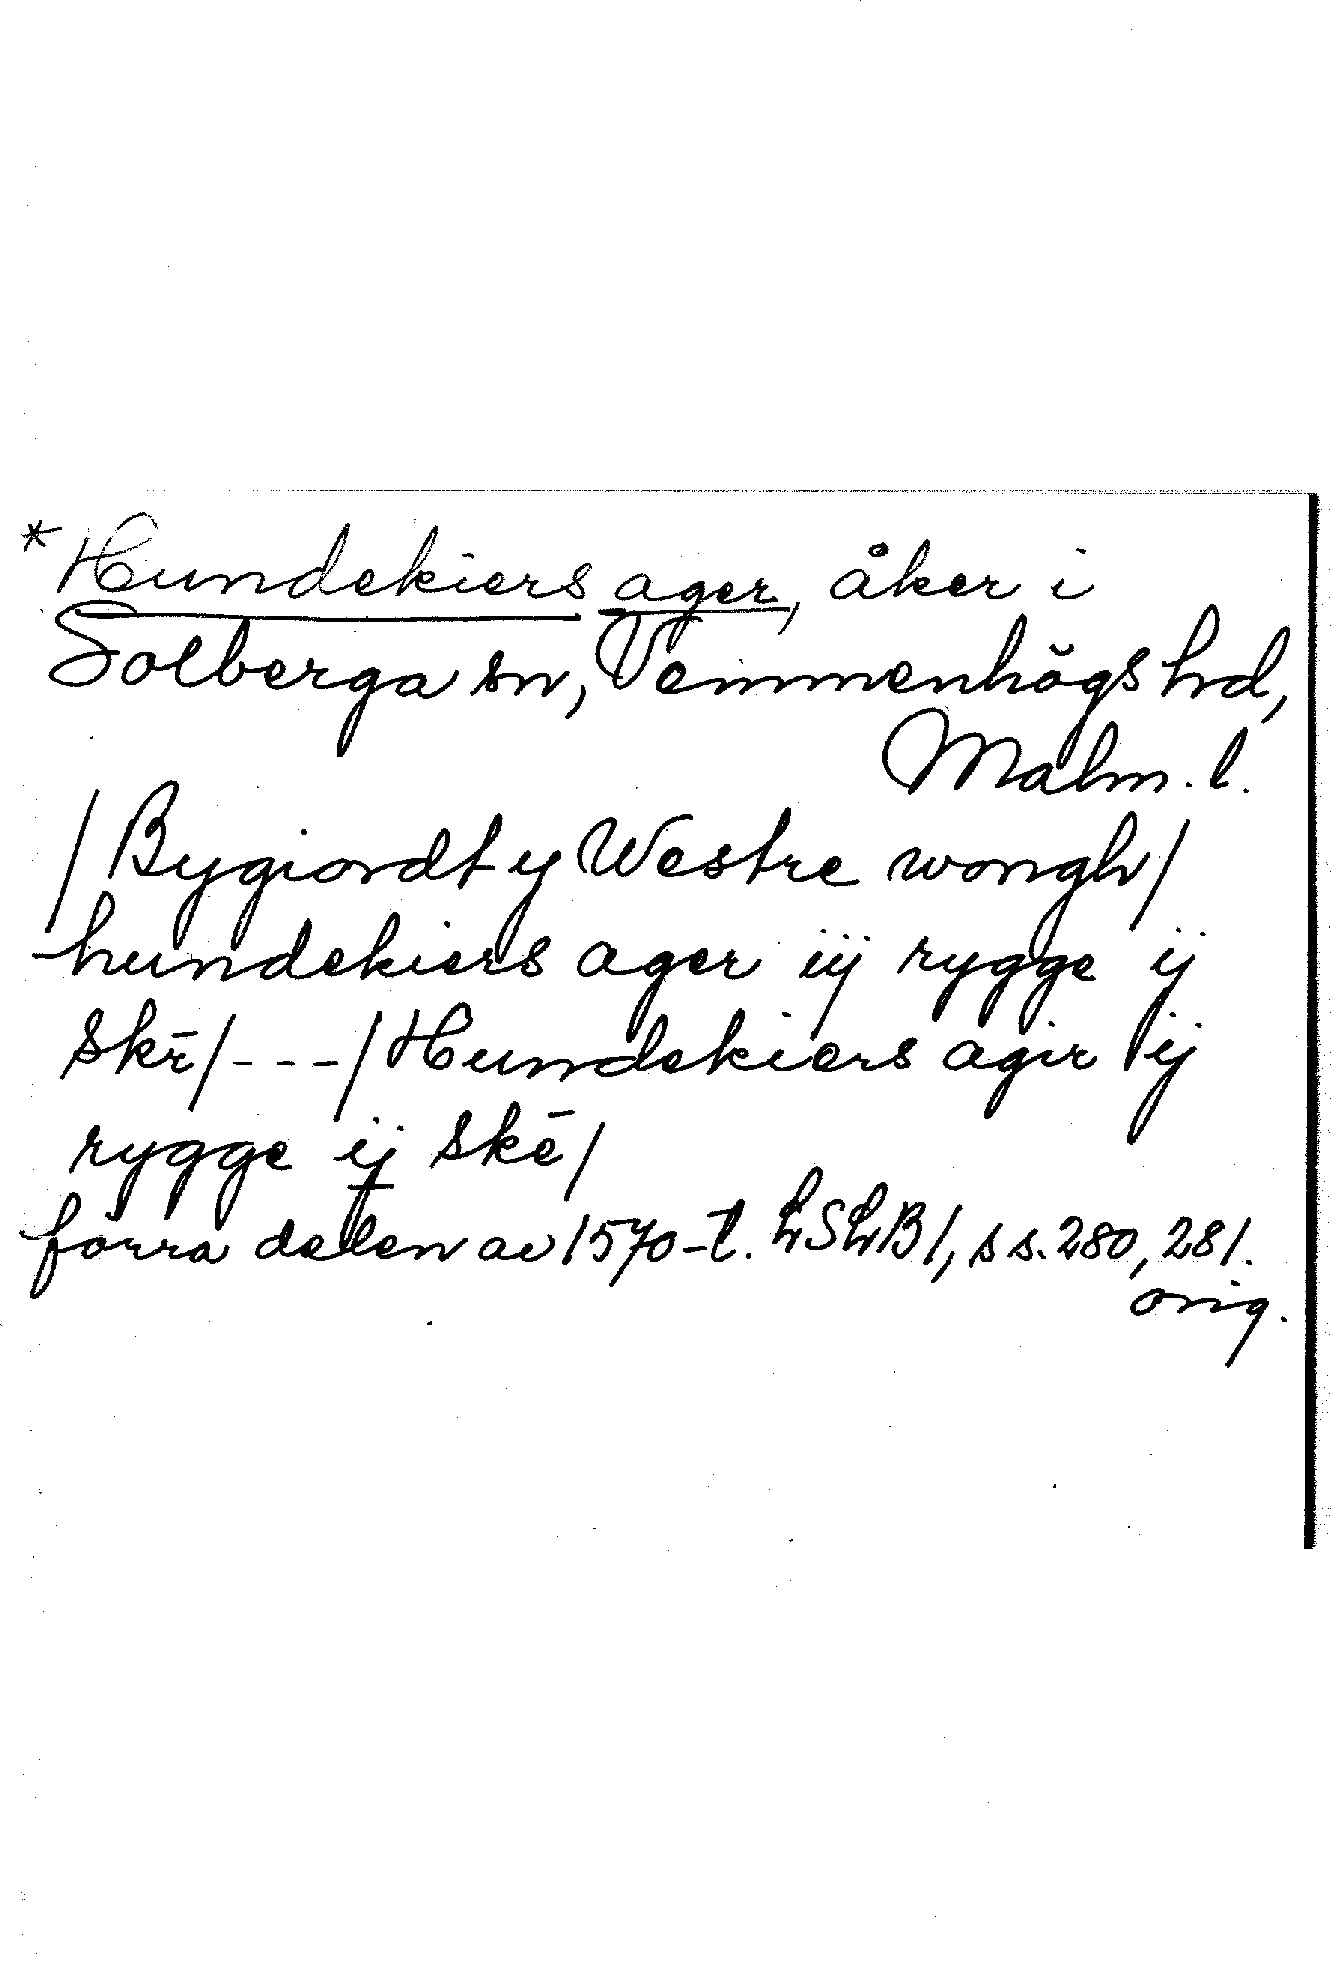 *Hundekiers ager, åker i
Solberga sn, Vemmenhögs hd,
Malm. l.
/Bygiordt y Westre wongh/
hundekiers ager iij rygge ij
skr̄/---/Hundekiers agir ij
rygge ij skē/
förra delen av 1570-t. LSLB1, s s. 280, 281.
orig.